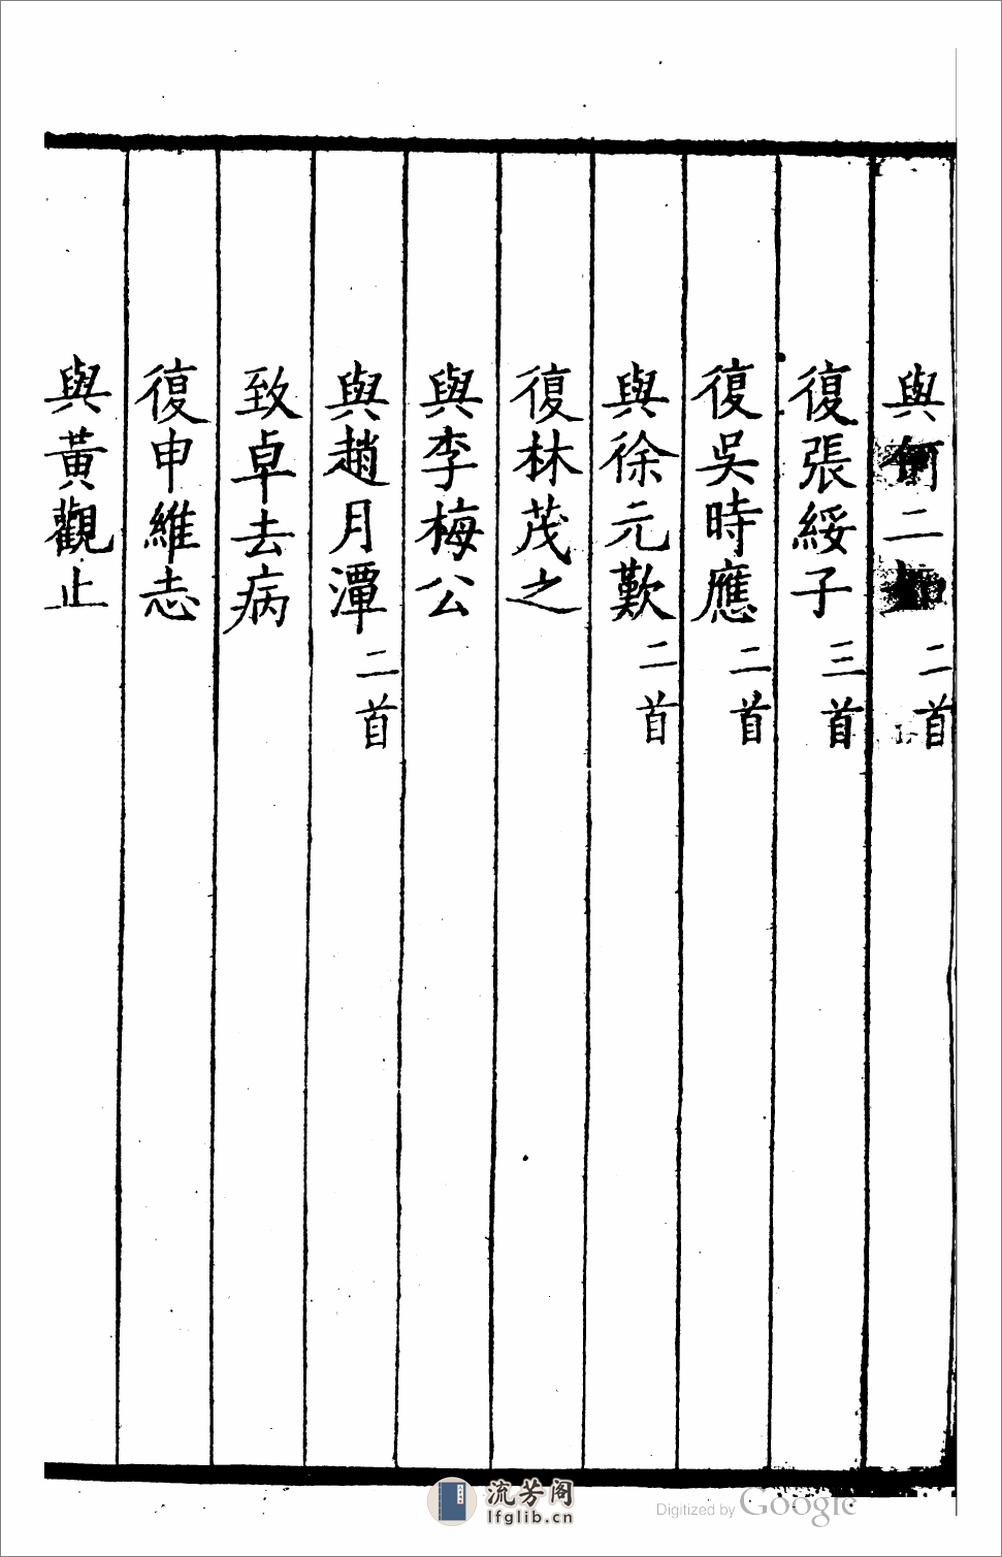 與何二如 二首
復張綏子 三首
復吳時應 二首
與徐元歎 二首
復林茂之
與李梅公
與趙月潭 二首
致卓去病
復申維志
與黃觀止
流芳阁
lfglib.cn
Digitized by Google